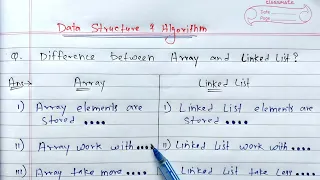 classmate
Date
Page
Data Structure & Algorithm
Q. Difference between Array and Linked List?
Ans→ Array Linked List
i) Array elements are stored •••• i) Linked List elements are stored ••••
ii) Array work with •••• ii) Linked List work with ••••
iii) Array take more •••• Linked List take less ••••